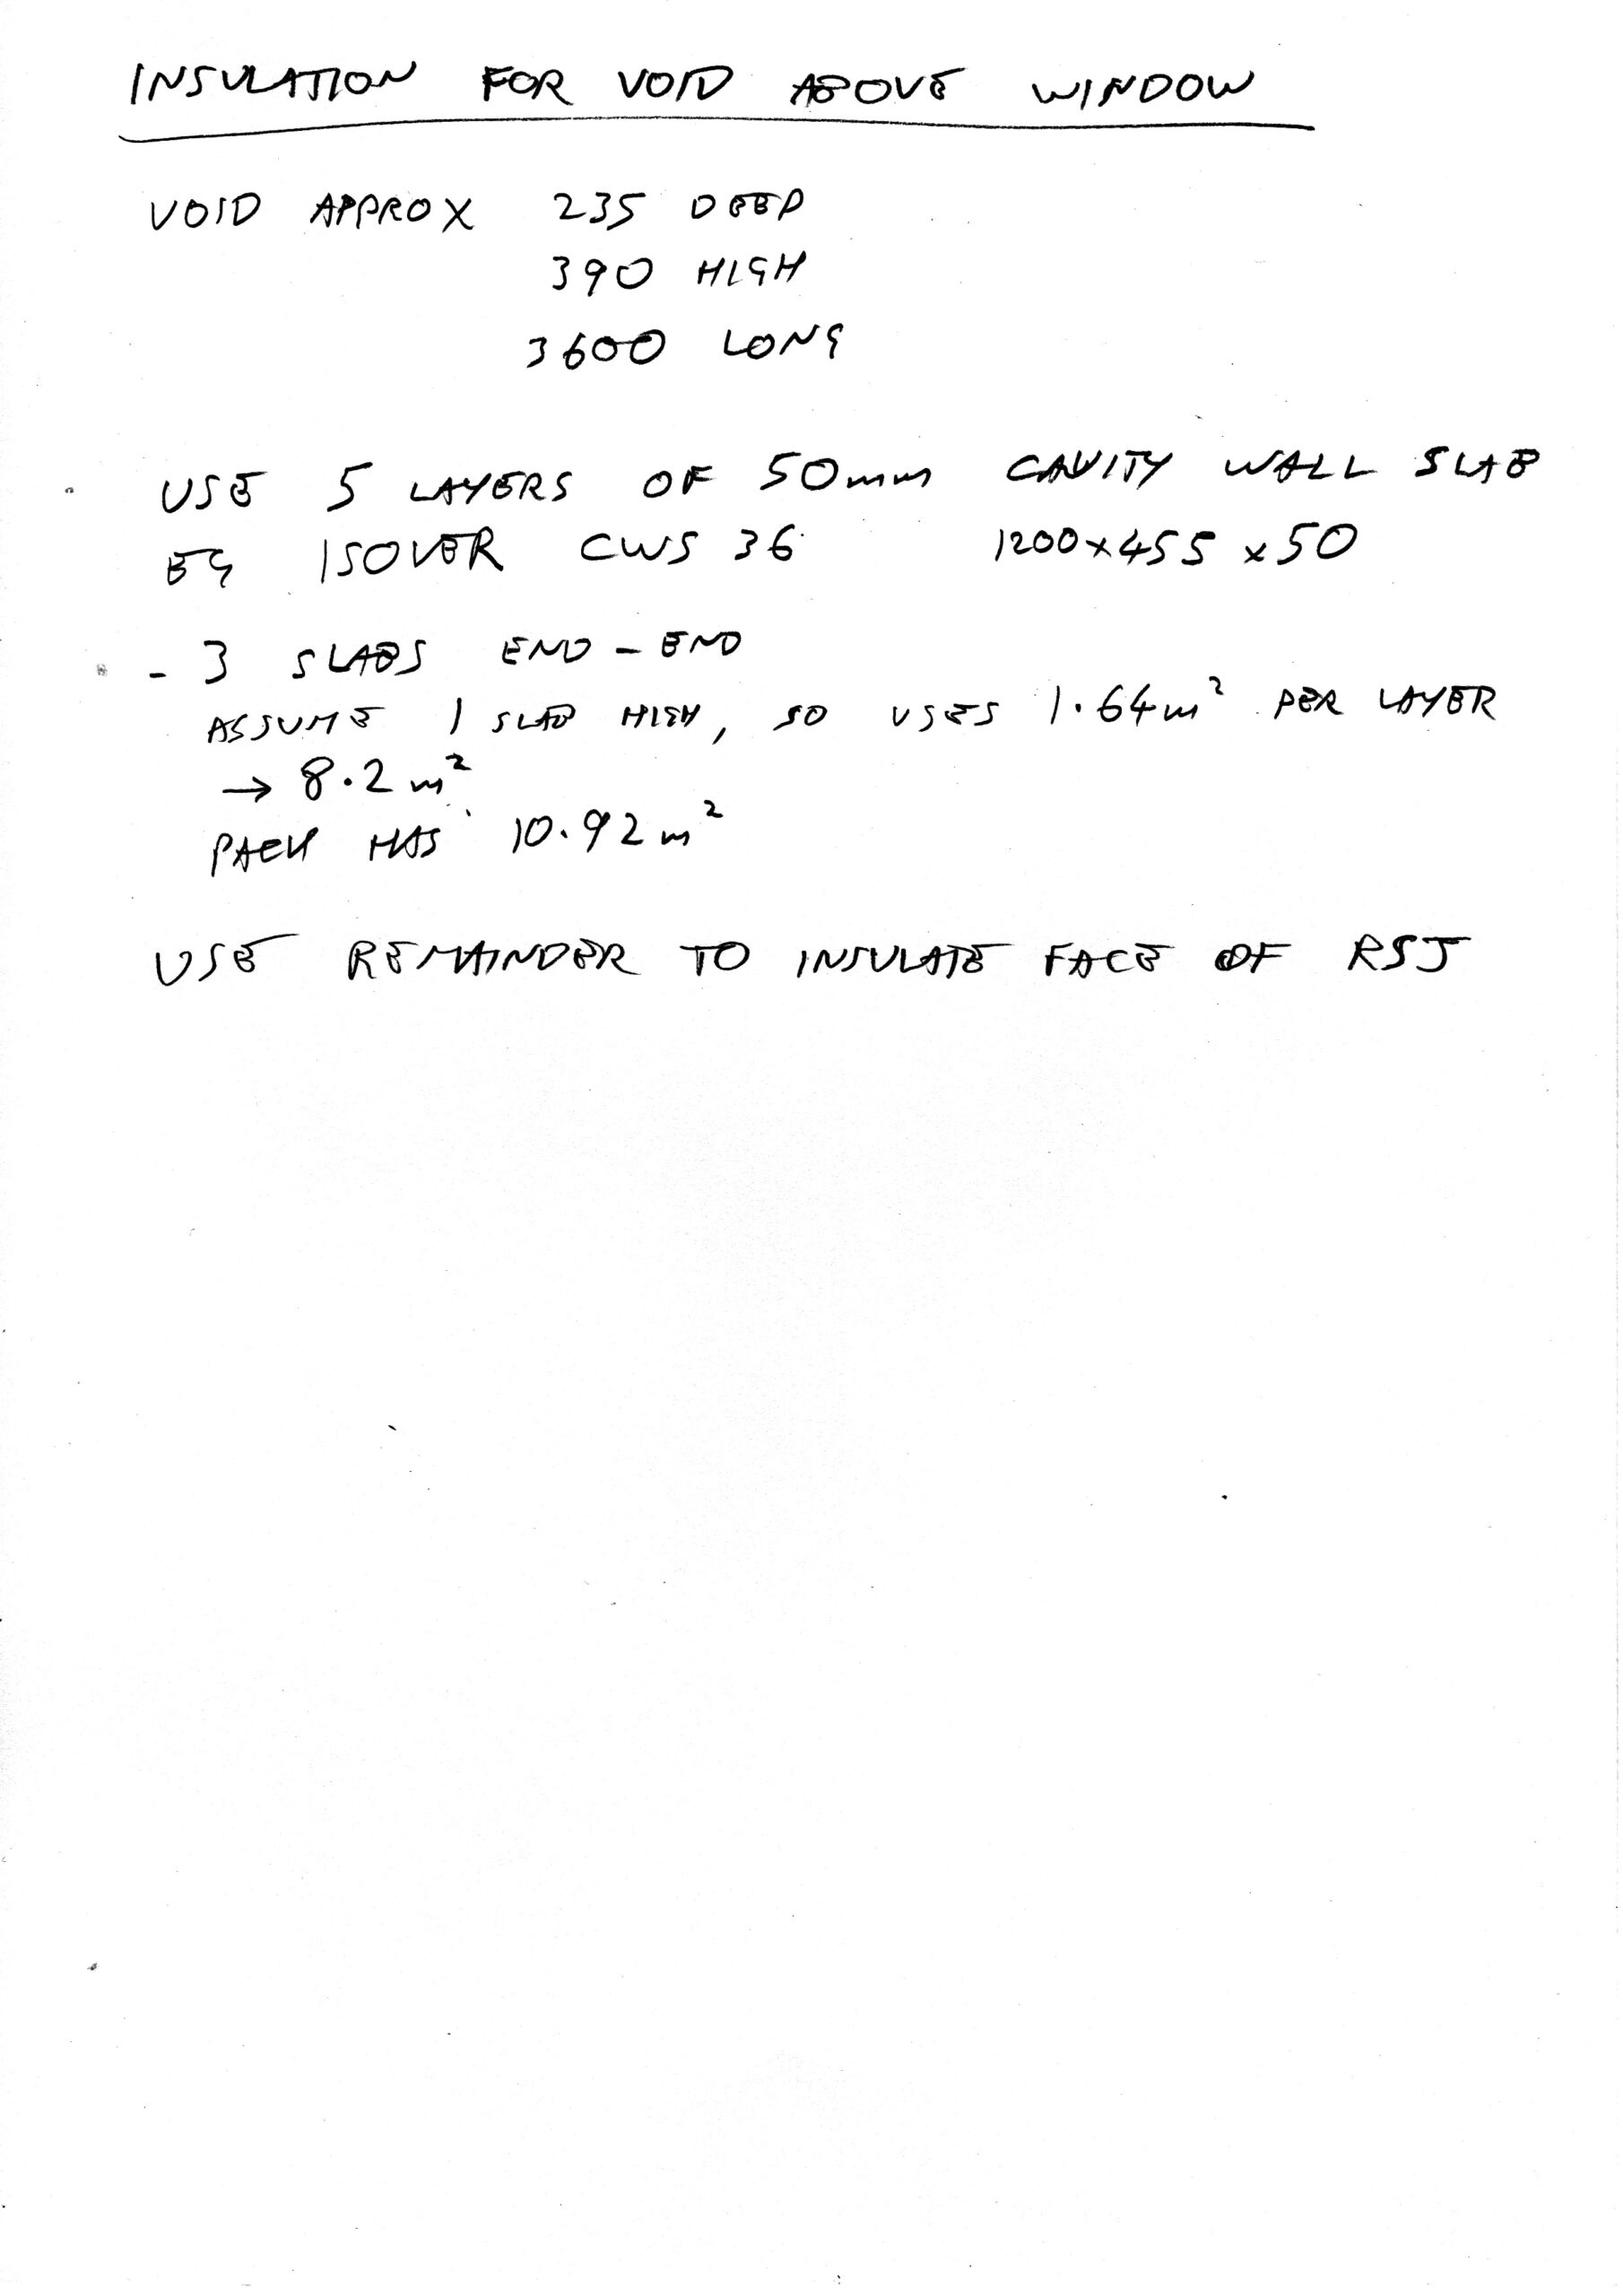 INSULATION FOR VOID ABOVE WINDOW
VOID APPROX 235 DEEP
390 HIGH
3600 LONG
USE 5 LAYERS OF 50mm CAVITY WALL SLAB
EG ISOVER CWS 36 1200x455x50
- 3 SLABS END-END
ASSUME 1 SLAB HIGH, SO USES 1.64m² PER LAYER
→ 8.2m²
PACK HAS 10.92m²
USE REMAINDER TO INSULATE FACE OF RSJ